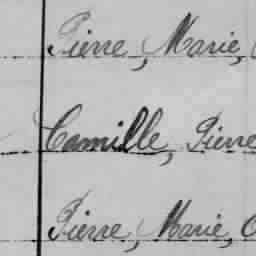 Pierre, Marie,
Camille, Pierre
Pierre, Marie,